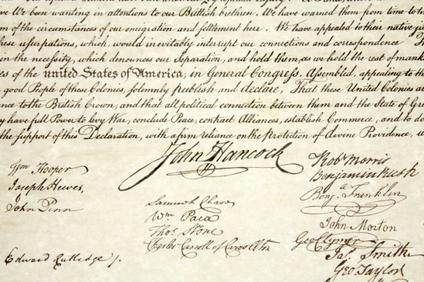 have we been wanting in attentions to our Brittish brethren. We have warned them from time to
of the circumstances of our emigration and settlement here. We have appealed to their native
these usurpations, which would inevitably interrupt our connections and correspondence.
in the necessity, which denounces our Separation, and hold them, as we hold the rest of
of the united States of America, in General Congress, Assembled, appealing to the
good People of these Colonies, solemnly publish and declare, That these United Colonies
to the British Crown, and that all political connection between them and the State of
they have full Power to levy War, conclude Peace, contract Alliances, establish Commerce, and to do
the support of this Declaration, with a firm reliance on the protection of divine Providence,
John Hancock
Wm Hooper
Joseph Hewes,
John Penn
Edward Rutledge
Samuel Chase
Wm Paca
Thos Stone
Charles Carroll of Carrollton
Robt Morris
Benjamin Rush
Benj. Franklin
John Morton
Geo Clymer
Jas. Smith
Geo. Taylor